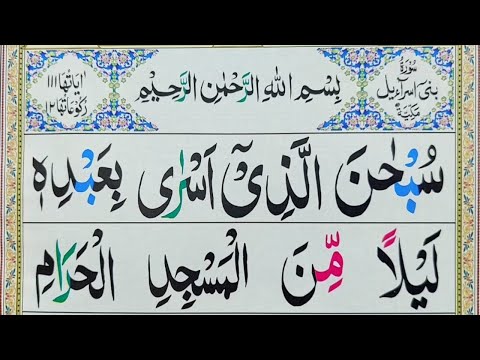 سُوْرَةُ
بنیٓ اسرآءیل
مکیة
بِسْمِ اللهِ الرَّحْمٰنِ الرَّحِیْمِ
اٰیاتها ۱۱۱
رکوعاتها ۱۲
سُبْحٰنَ الَّذِیْۤ اَسْرٰی بِعَبْدِهٖ
لَیْلًا مِّنَ الْمَسْجِدِ الْحَرَامِ